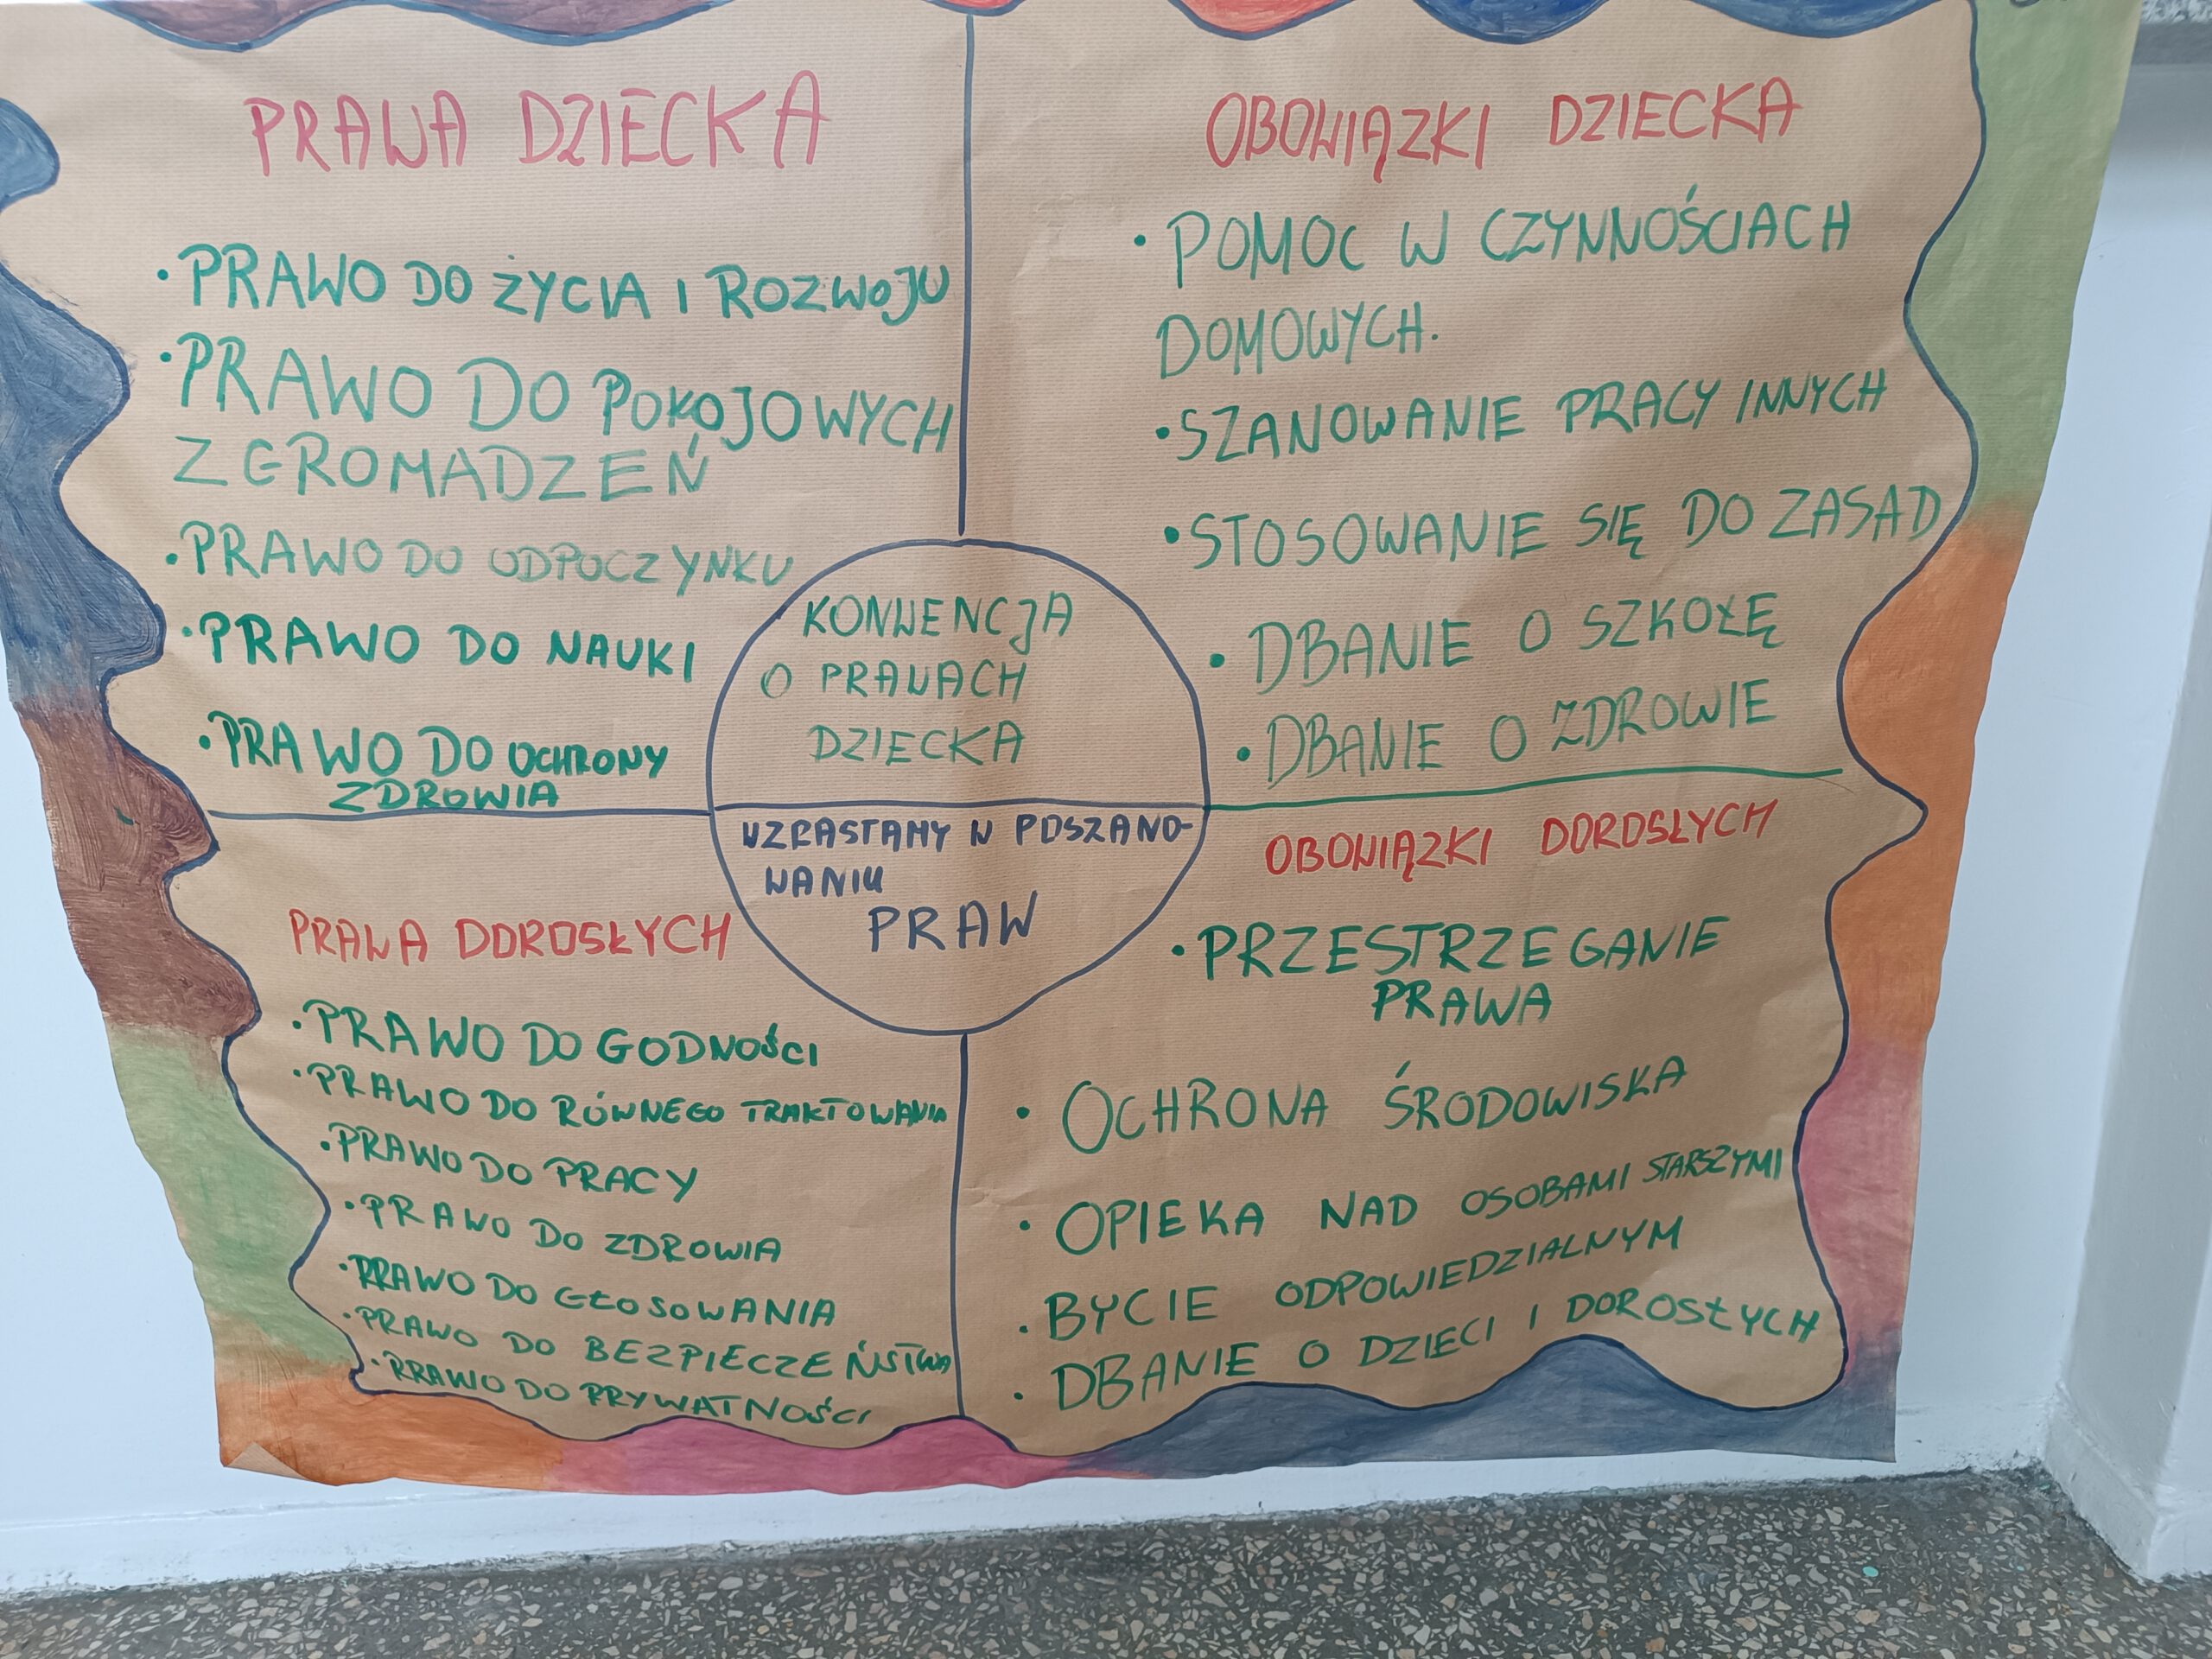 PRAWA DZIECKA
• PRAWO DO ŻYCIA I ROZWOJU
• PRAWO DO POKOJOWYCH
ZGROMADZEŃ
• PRAWO DO ODPOCZYNKU
• PRAWO DO NAUKI
• PRAWO DO OCHRONY
ZDROWIA
OBOWIĄZKI DZIECKA
• POMOC W CZYNNOŚCIACH
DOMOWYCH.
• SZANOWANIE PRACY INNYCH
• STOSOWANIE SIĘ DO ZASAD
• DBANIE O SZKOŁĘ
• DBANIE O ZDROWIE
KONWENCJA
O PRAWACH
DZIECKA
WZRASTAMY W POSZANO-
WANIU
PRAW
PRAWA DOROSŁYCH
• PRAWO DO GODNOŚCI
• PRAWO DO RÓWNEGO TRAKTOWANIA
• PRAWO DO PRACY
• PRAWO DO ZDROWIA
• PRAWO DO GŁOSOWANIA
• PRAWO DO BEZPIECZEŃSTWA
• PRAWO DO PRYWATNOŚCI
OBOWIĄZKI DOROSŁYCH
• PRZESTRZEGANIE
PRAWA
• OCHRONA ŚRODOWISKA
• OPIEKA NAD OSOBAMI STARSZYMI
• BYCIE ODPOWIEDZIALNYM
• DBANIE O DZIECI I DOROSŁYCH